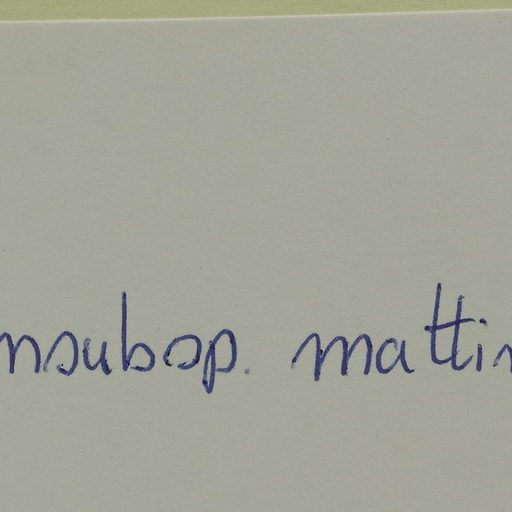 nsubsp. mattin